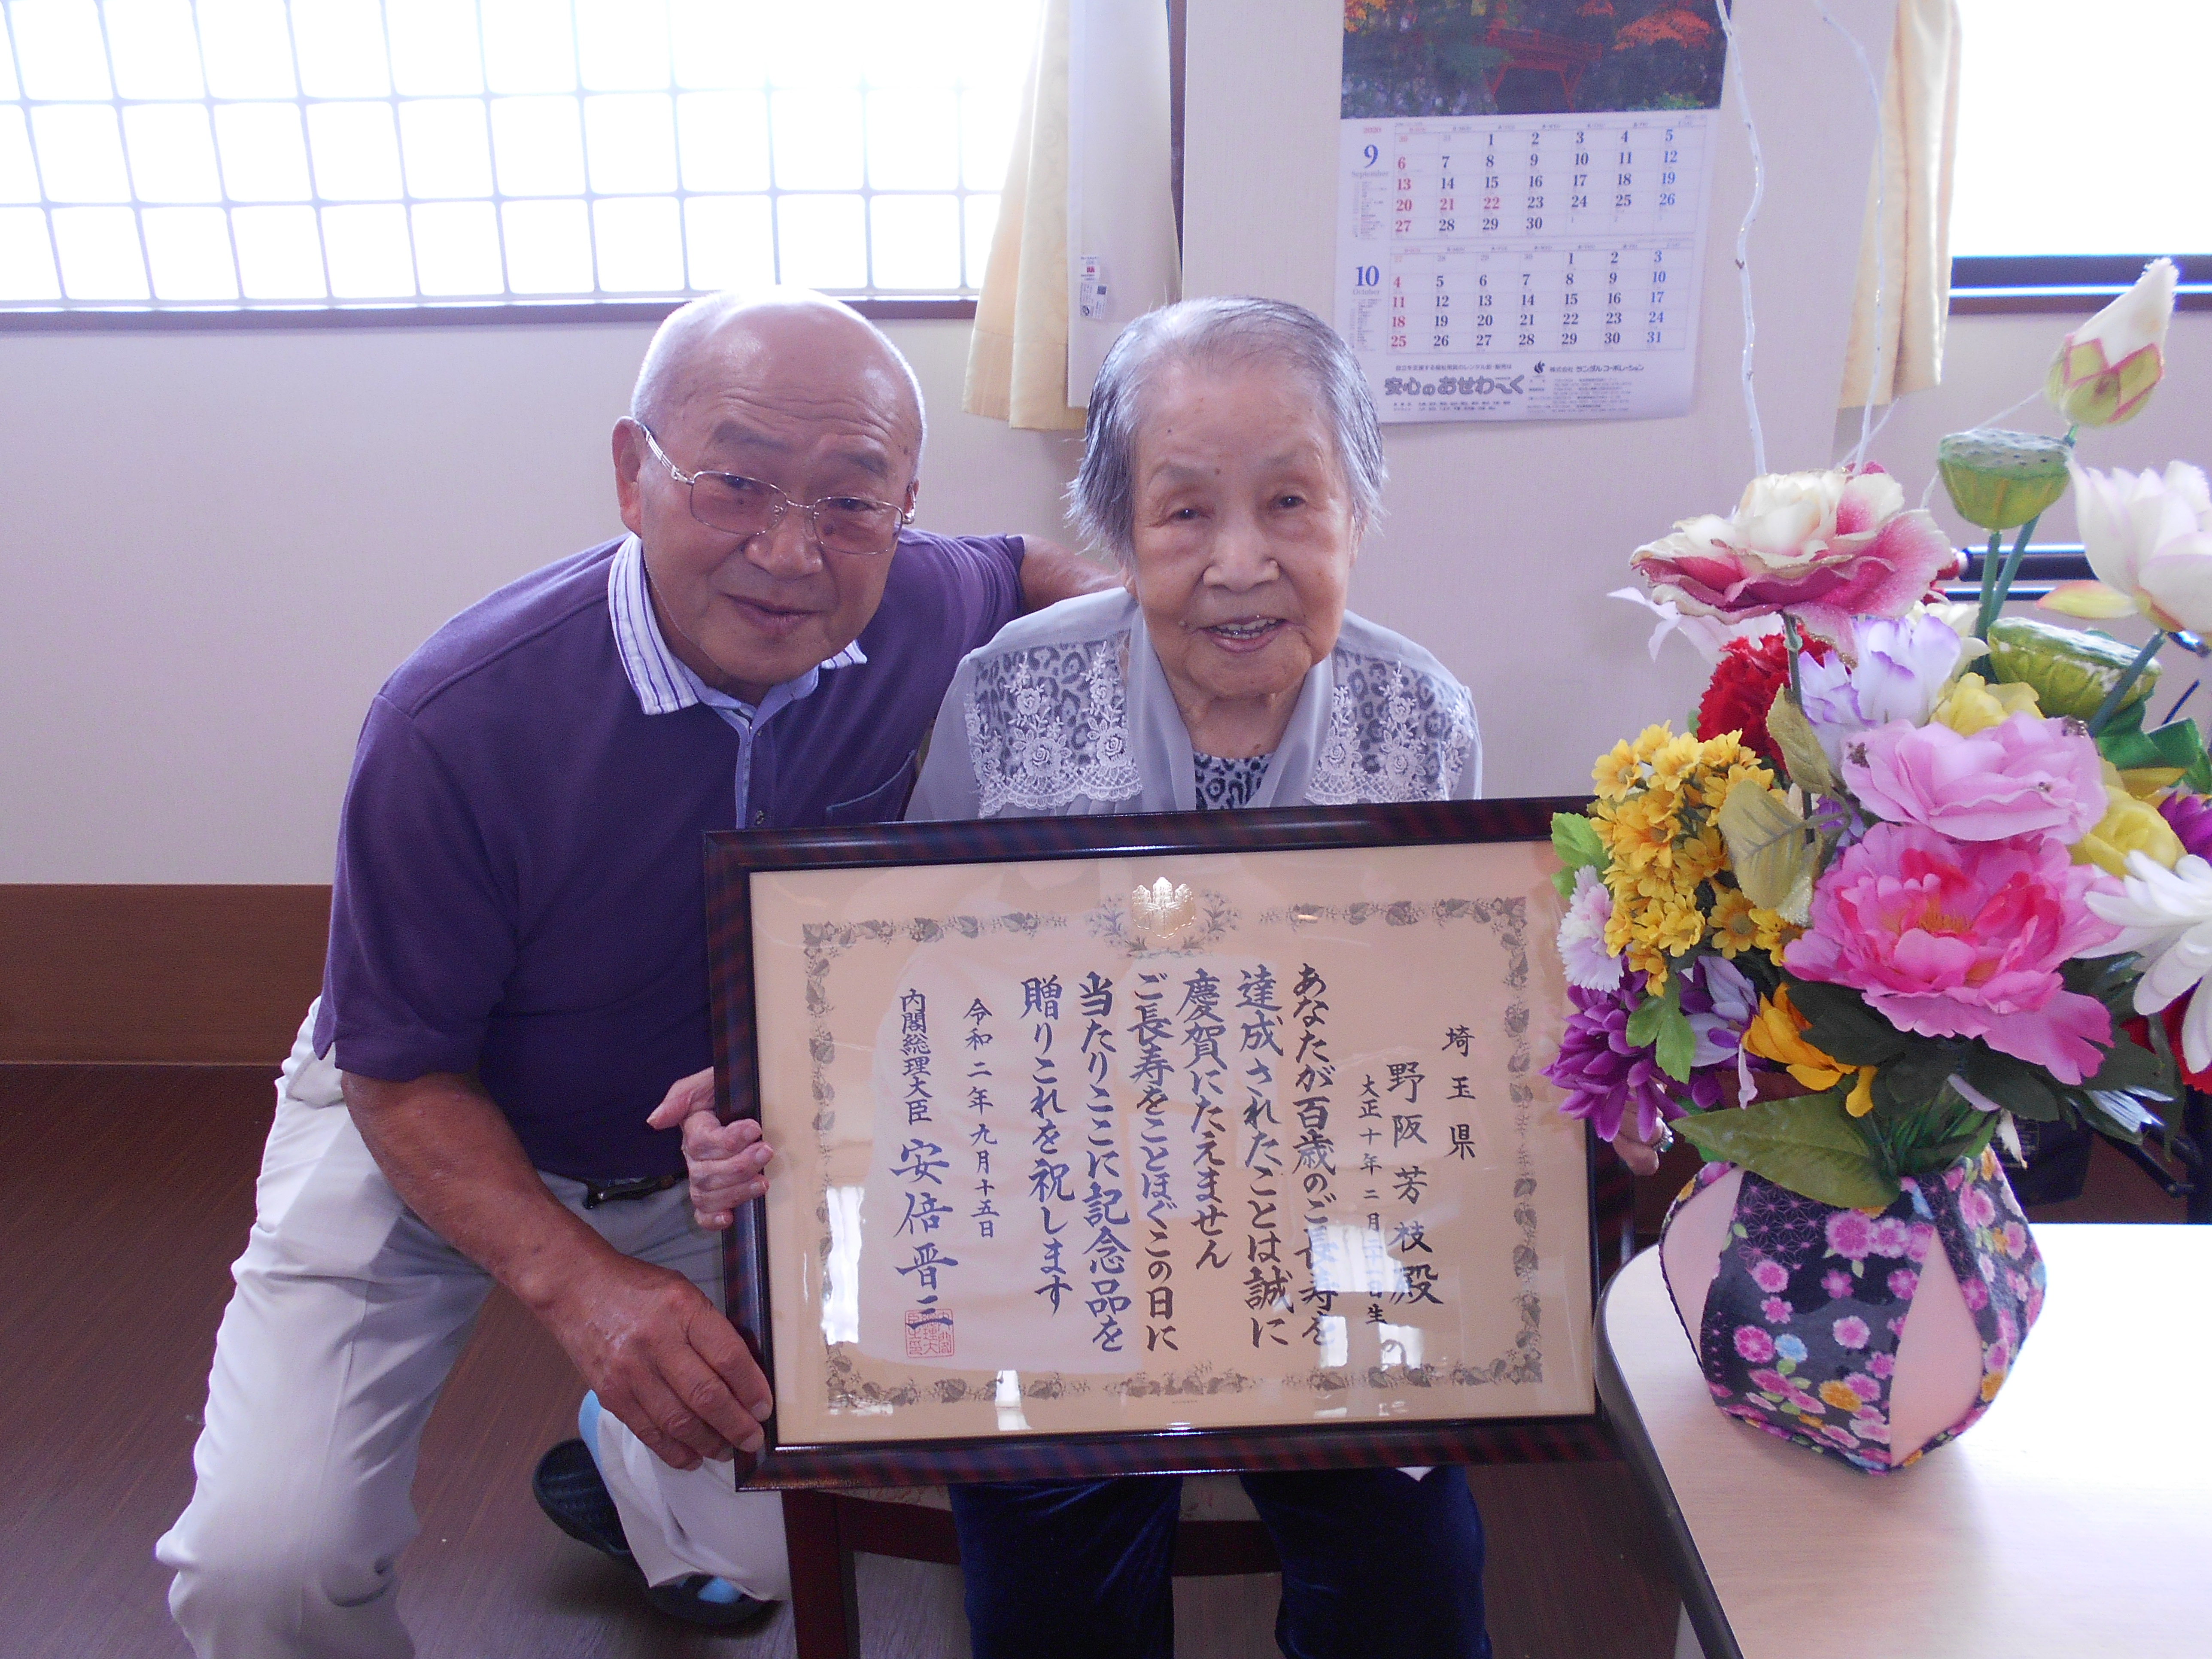 2020
9
September
30 31 1 2 3 4 5
6 7 8 9 10 11 12
13 14 15 16 17 18 19
20 21 22 23 24 25 26
27 28 29 30
10
October
27 28 29 30 1 2 3
4 5 6 7 8 9 10
11 12 13 14 15 16 17
18 19 20 21 22 23 24
25 26 27 28 29 30 31
安心のおせわ〜く
株式会社 サンダルコーポレーション
埼玉県
野阪芳枝殿
大正十年二月二十一日生
あなたが百歳のご長寿を
達成されたことは誠に
慶賀にたえません
ご長寿をことほぐこの日に
当たりここに記念品を
贈りこれを祝します
令和二年九月十五日
内閣総理大臣 安倍晋三